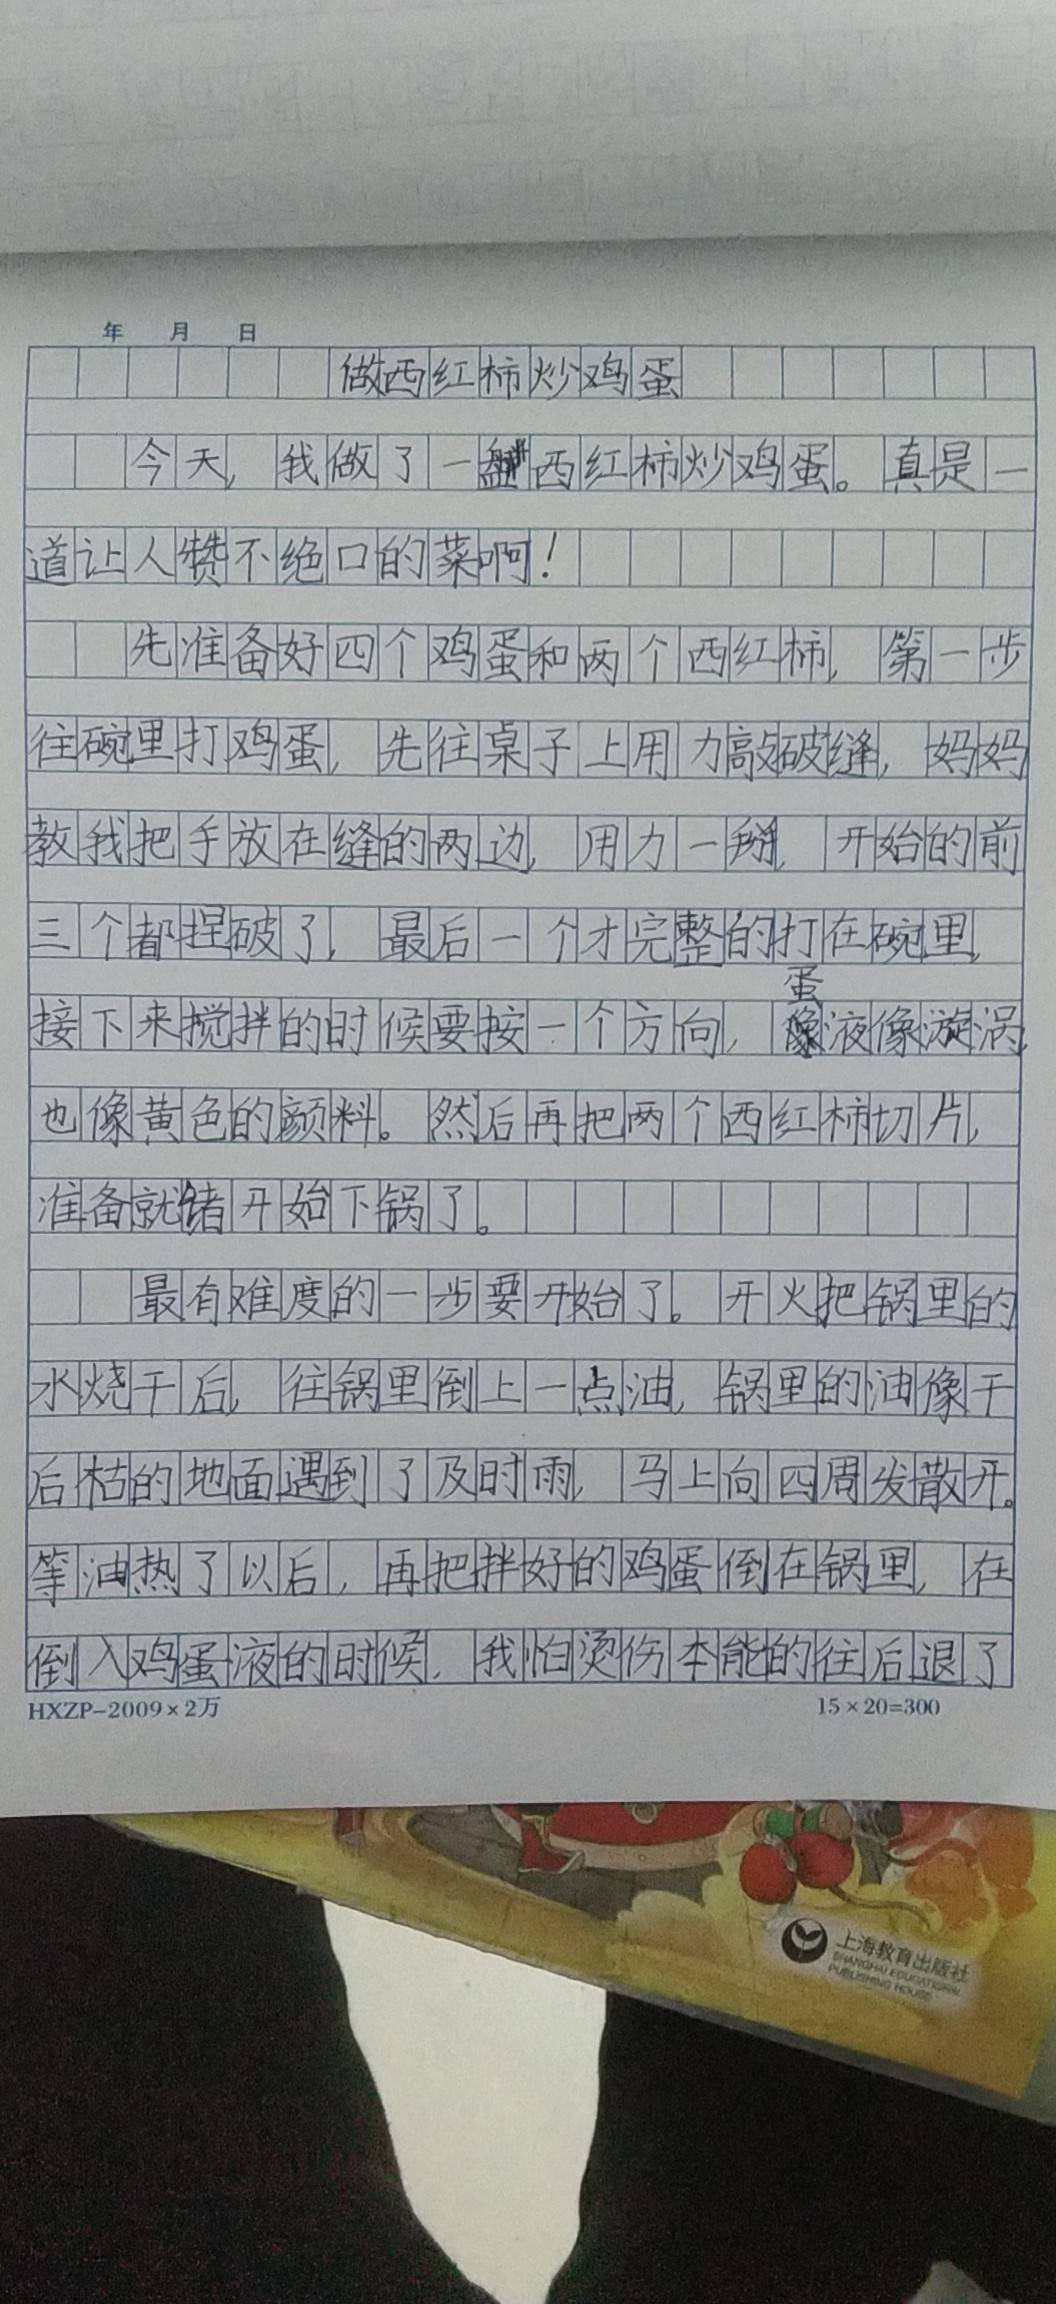 年 月 日
做西红柿炒鸡蛋
今天，我做了一盘西红柿炒鸡蛋。真是一
道让人赞不绝口的菜啊！
先准备好四个鸡蛋和两个西红柿，第一步
往碗里打鸡蛋，先往桌子上用力敲破缝，妈妈
教我把手放在缝的两边，用力一掰，开始的前
三个都捏破了，最后一个才完整的打在碗里，
接下来搅拌的时候要按一个方向，蛋液像漩涡，
也像黄色的颜料。然后再把两个西红柿切片，
准备就锗开始下锅了。
最有难度的一步要开始了。开火把锅里的
水烧干后，往锅里倒上一点油，锅里的油像干
后枯的地面遇到了及时雨，马上向四周发散开。
等油热了以后，再把拌好的鸡蛋倒在锅里，在
倒入鸡蛋液的时候，我怕烫伤本能的往后退了
HXZP-2009×2万 15×20=300
上海教育出版社
SHANGHAI EDUCATIONAL
PUBLISHING HOUSE